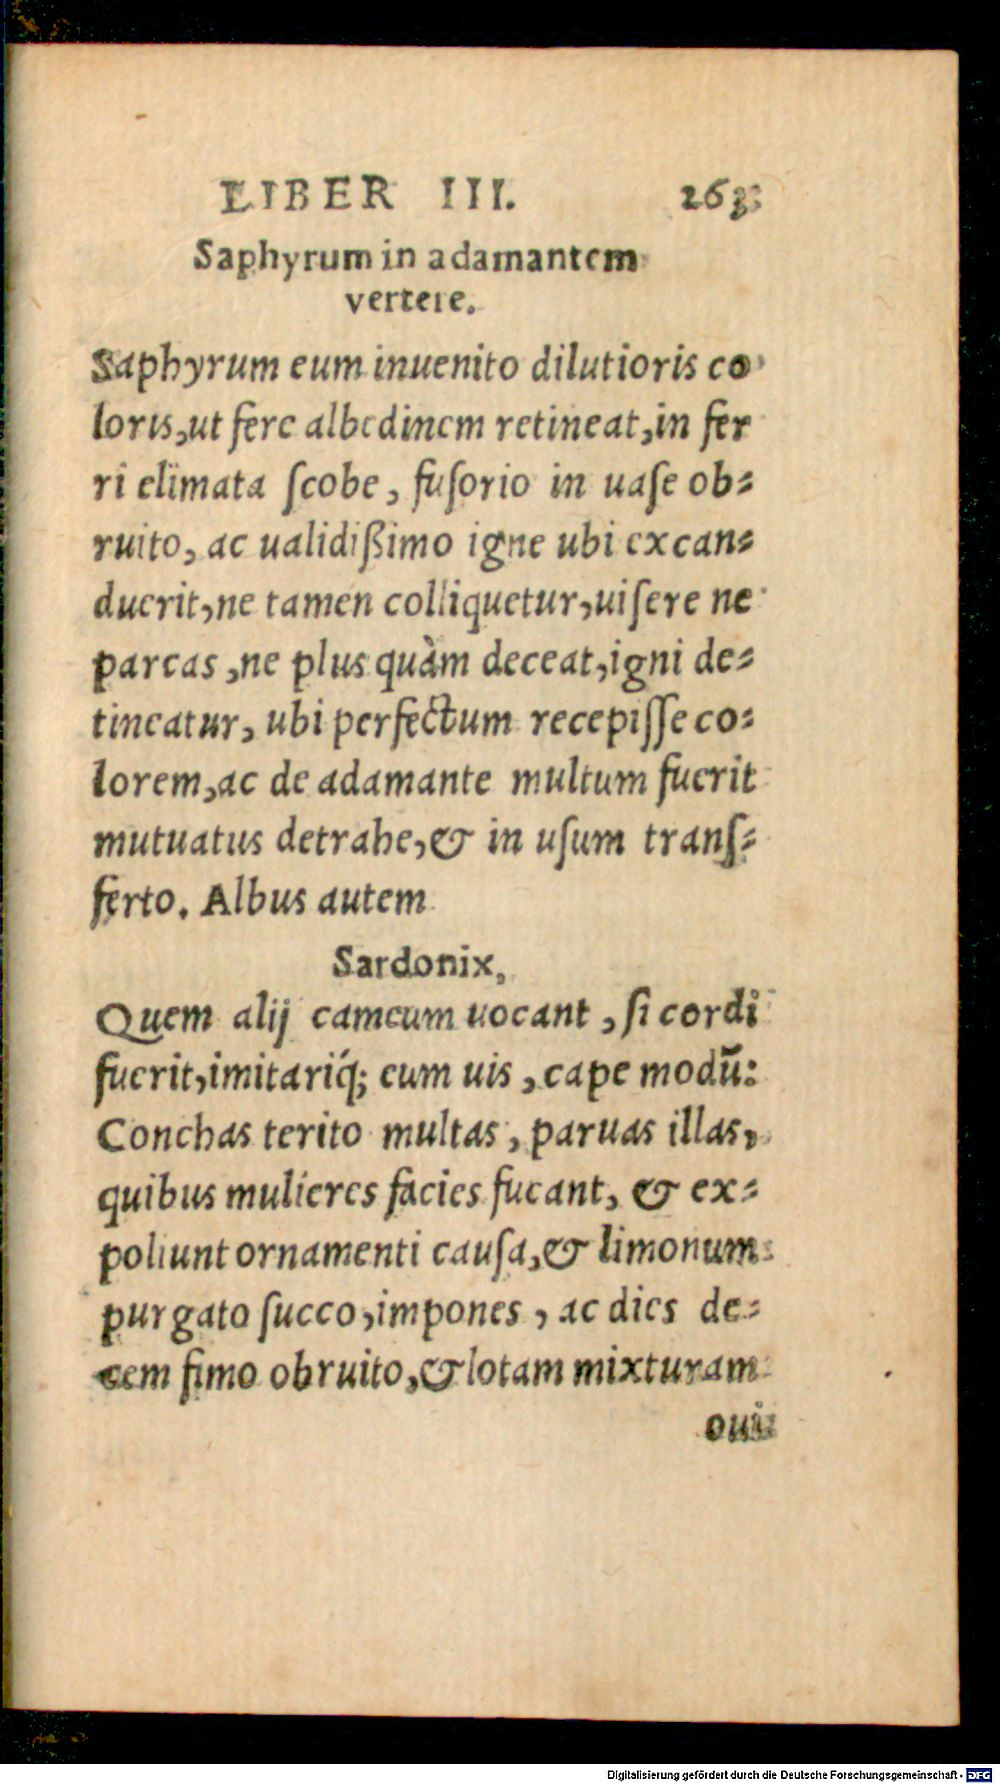 LIBER III. 263
Saphyrum in adamantem
vertere.
Saphyrum eum inuenito dilutioris co
loris, ut fere albedinem retineat, in fer
ri elimata ſcobe, fuſorio in uaſe ob⸗
ruito, ac ualidißimo igne ubi excan⸗
duerit, ne tamen colliquetur, uiſere ne
parcas, ne plus quàm deceat, igni de⸗
tineatur, ubi perfectum recepiſſe co⸗
lorem, ac de adamante multum fuerit
mutuatus detrahe, & in uſum tranſ⸗
ferto. Albus autem
Sardonix,
Quem alij cameum uocant, ſi cordi
fuerit, imitariq́; eum uis, cape modū:
Conchas terito multas, paruas illas,
quibus mulieres facies fucant, & ex⸗
poliunt ornamenti cauſa, & limonum
purgato ſucco, impones, ac dies de⸗
cem fimo obruito, & lotam mixturam
oui
Digitalisierung gefördert durch die Deutsche Forschungsgemeinschaft - DFG